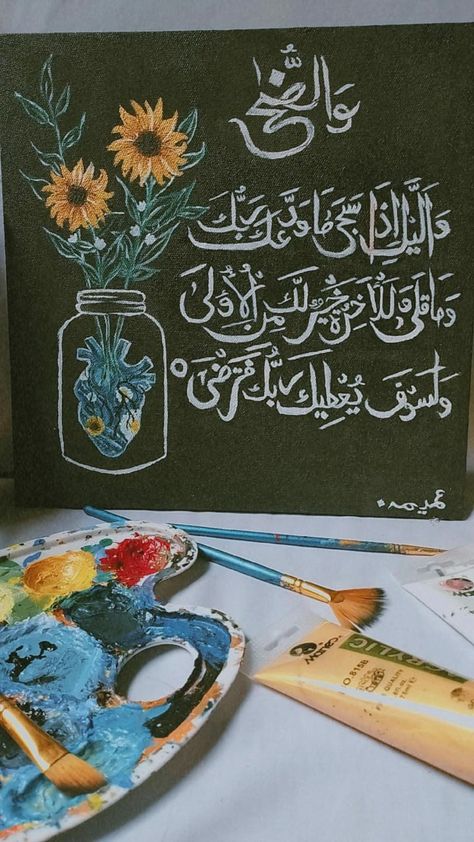 وَالضُّحَى
وَالَّيْلِ إِذَا سَجَى مَا وَدَّعَكَ رَبُّكَ
وَمَا قَلَى وَلَلْآخِرَةُ خَيْرٌ لَّكَ مِنَ الْأُولَى
وَلَسَوْفَ يُعْطِيكَ رَبُّكَ فَتَرْضَى
QUALITY